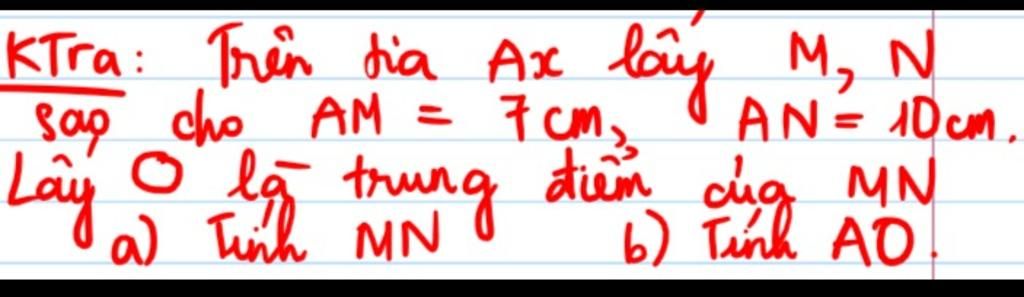 KTra: Trên tia Ax lấy M, N
sao cho AM = 7cm, AN = 10cm.
Lấy O là trung điểm của MN
a) Tính MN b) Tính AO.